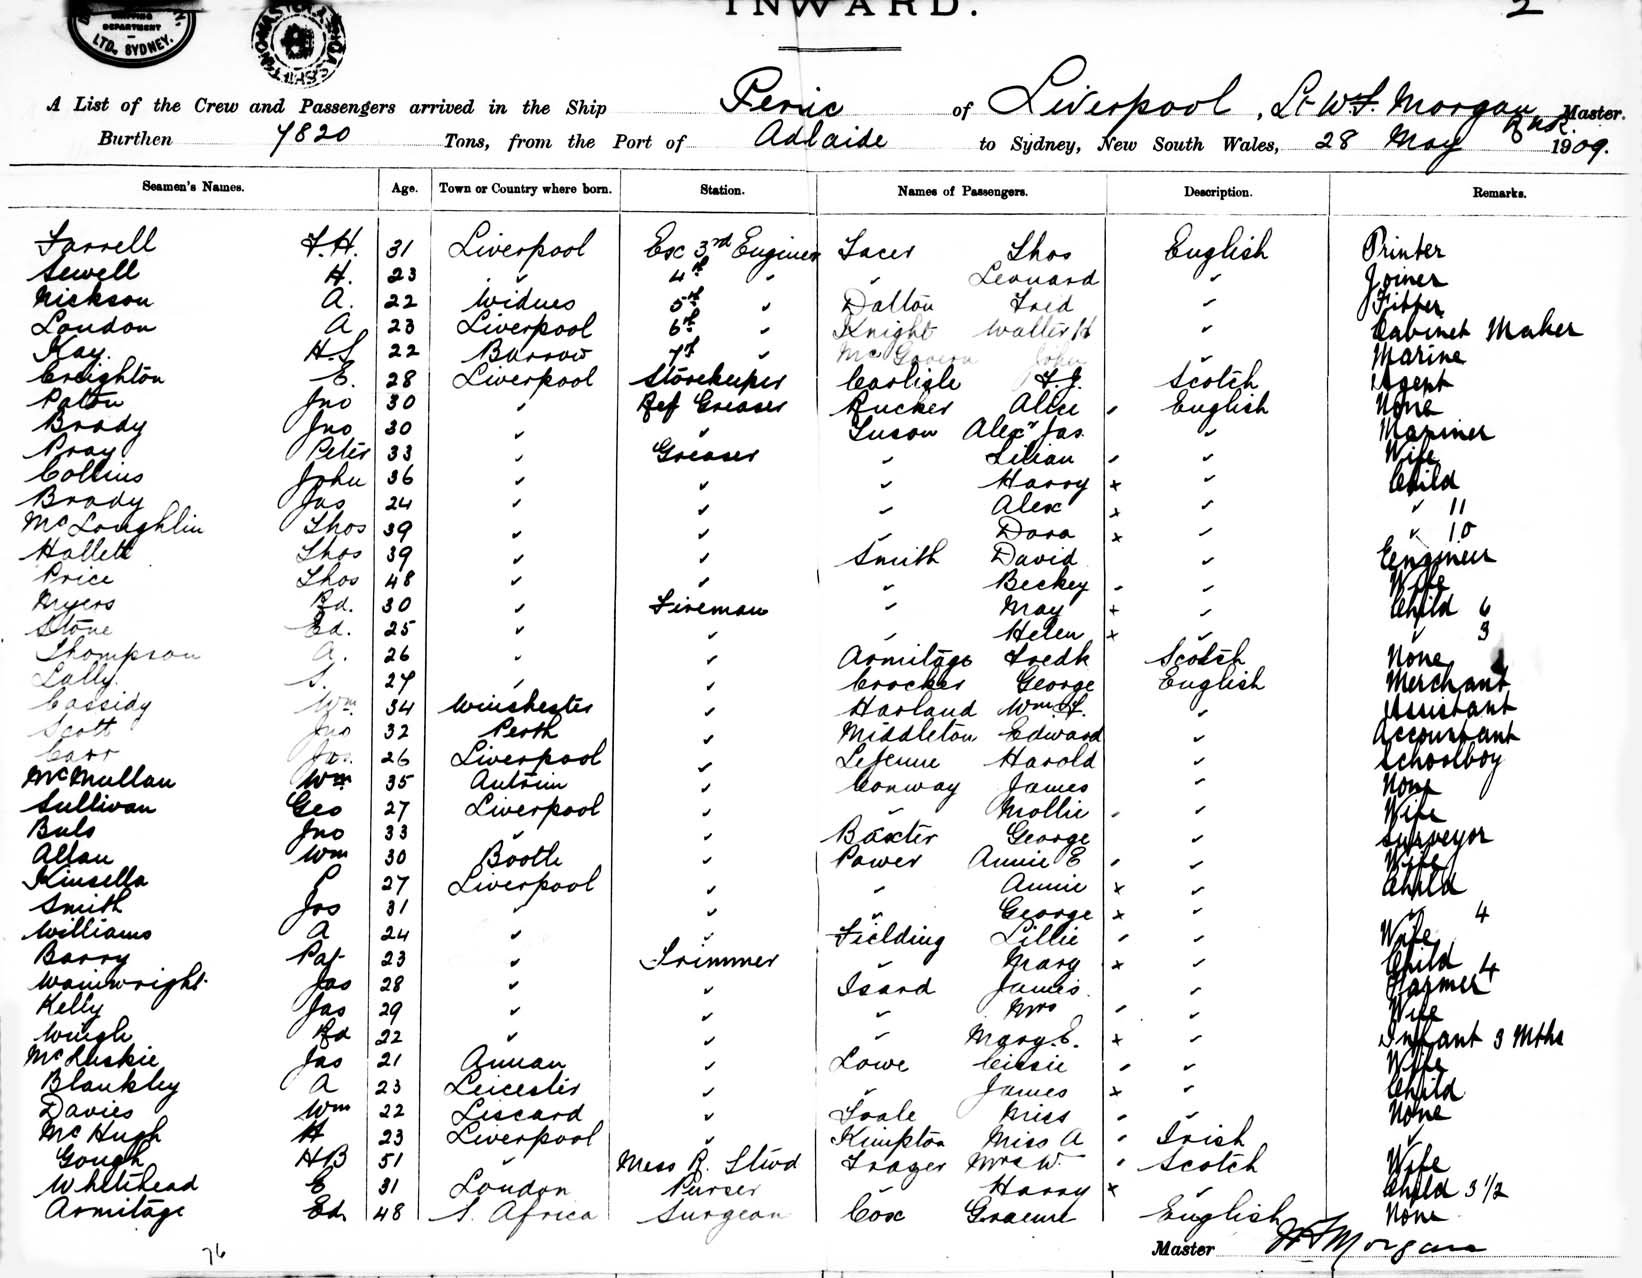 INWARD. 2
SHIPPING DEPARTMENT
LTD. SYDNEY.
A List of the Crew and Passengers arrived in the Ship Persic of Liverpool, Lt W.F. Morgan Master.
R.N.R.
Burthen 7820 Tons, from the Port of Adlaide to Sydney, New South Wales, 28 May 1909.
Seamen's Names. Age. Town or Country where born. Station. Names of Passengers. Description. Remarks.
Farrell F.H. 31 Liverpool Ex 3rd Engineer Facer Thos English Printer
Sewell H. 23 " 4th " " Leonard " Joiner
Nickson A. 22 Widnes 5th " Dalton Fred " Fitter
London A 23 Liverpool 6th " Knight Walter H " Cabinet Maker
Kay. H.S 22 Barrow 7th " McGovern John " Marine
Creighton E. 28 Liverpool Storekeeper Carlisle F.J. Scotch Agent
Paton Jno 30 " Ref Greaser Rucker Alice " English None
Brady Jno 30 " " Tuson Alexr Jas. " Mariner
Pray Peter 33 " Greaser " Lilian " " Wife
Collins John 36 " " " Harry x " Child
Brady Jas 24 " " Alex x " " 11
McLoughlin Thos 39 " " " Dora x " " 10
Hallett Thos 39 " " Smith David " Eengineer
Price Thos 48 " " " Beckey " " Wife
Myers Rd. 30 " Fireman " May + " Child 6
Stone Ed. 25 " " " Helen x " " 3
Thompson A. 26 " " Armitage Fredk Scotch None
Lally. S. 27 " " Crocker George English Merchant
Cassidy Wm 34 Winchester " Harland Wm. F. " Assistant
Scott Jno 32 Perth " Middleton Edward " Accountant
Carr Jos. 26 Liverpool " Lejeune Harold " Schoolboy
McMullan Wm 35 Antrim " Conway James " None
Sullivan Geo 27 Liverpool " " Mollie " " Wife
Buls Jno 33 " " Baxter George " Surveyor
Allan Wm 30 Bootle " Power Annie E " " Wife
Kinsella P 27 Liverpool " " Annie x " Child
Smith Jos 31 " " " George x " " 4
Williams A 24 " " Fielding Lillie " " Wife
Barry Pat 23 " Trimmer " Mary x " Child 4
Wainwright. Jas 28 " " Isard James. " Farmer
Kelly Jas 29 " " " Mrs " " Wife
Wingle Rd 22 " " " Mary. E. x " Infant 3 Mths
McLuskie Jas 21 Annan " Lowe Cissie " " Wife
Blankley A 23 Leicester " " James x " Child
Davies Wm 22 Liscard " Toale Miss " " None
McHugh H 23 Liverpool " Kimpton Miss A " Irish "
Gough HB 51 " Mess R. Stwd Frager Mrs W. " Scotch Wife
Whitehead E 31 London Purser " Harry x " Child 3 1/2
Armitage Ed. 48 S. Africa Surgeon Cox Graeme English None
Master W F Morgan
76